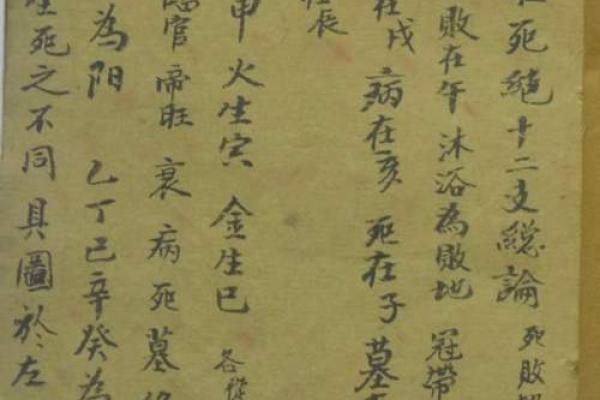 死絶十二支總論 死敗
敗在午 沐浴為敗地 冠帶
在戌 病在亥 死在子 墓
長
申 火生寅 金生巳 各從
臨官 帝旺 衰 病 死 墓
為阳 乙丁己辛癸為
生死之不同 具圖於左